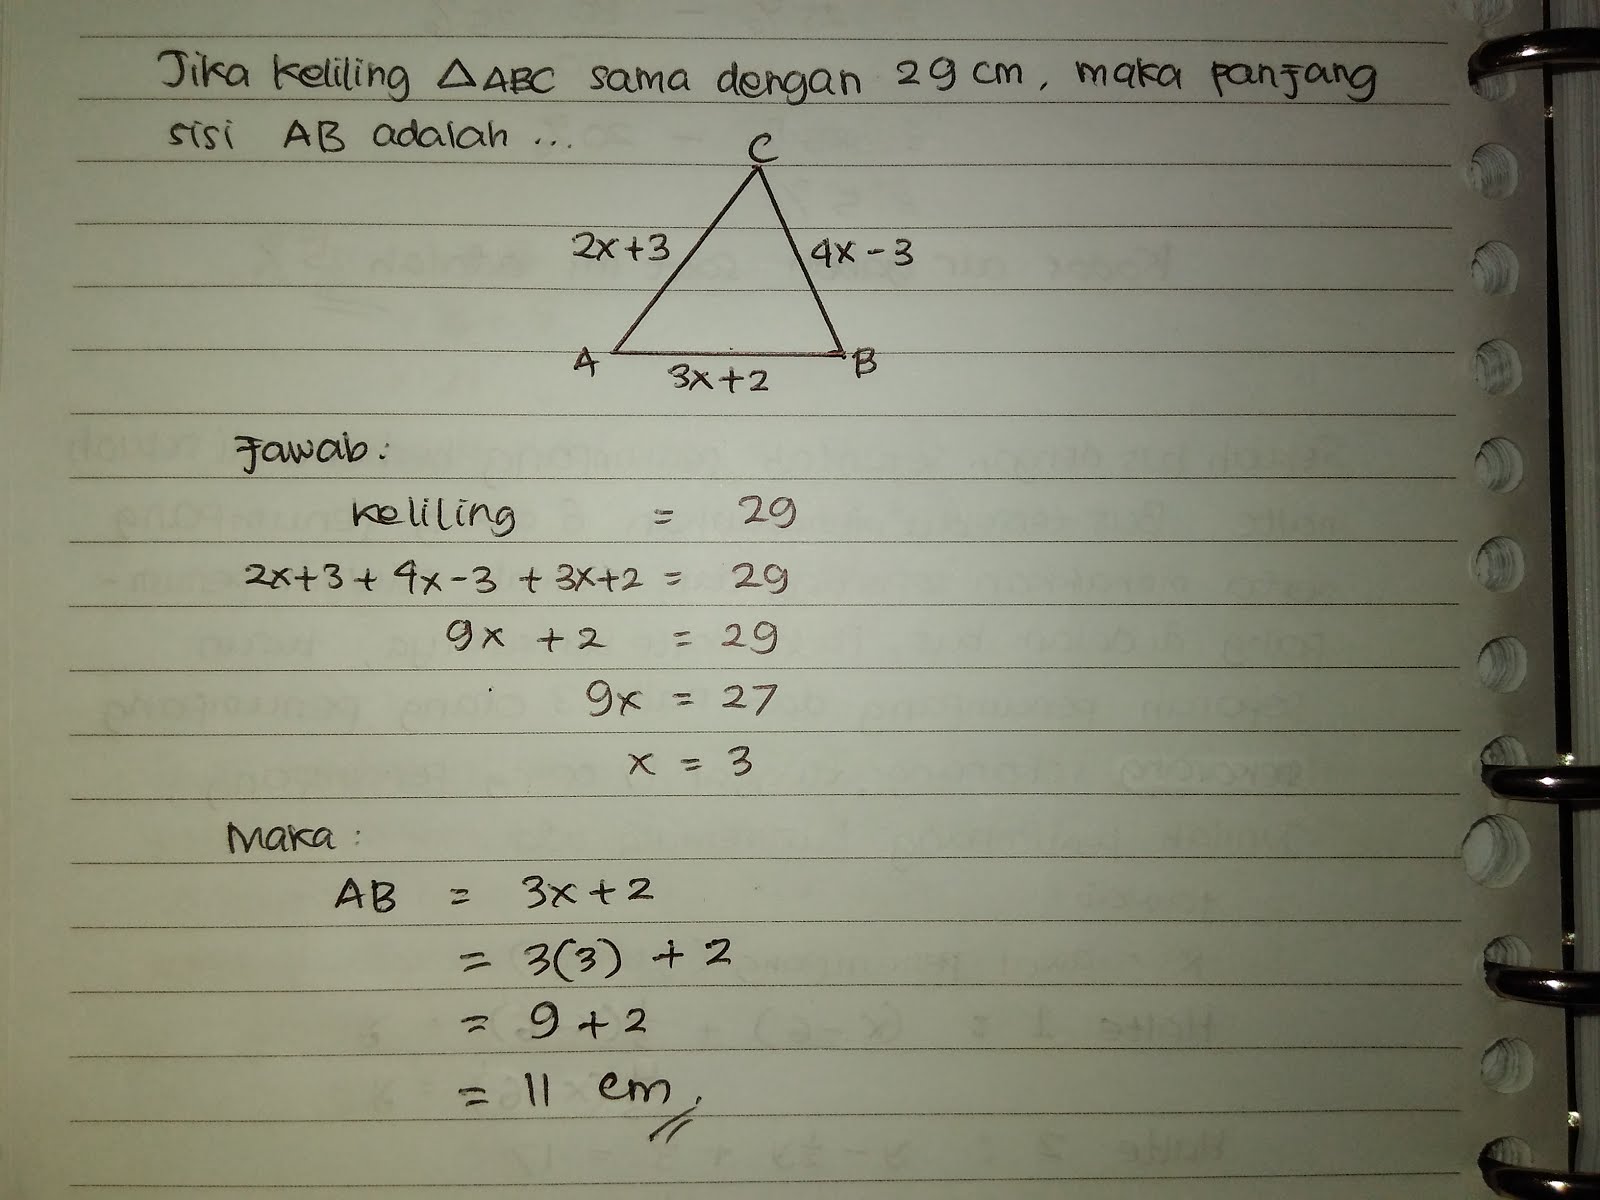 Jika keliling △ABC sama dengan 29 cm, maka panjang
sisi AB adalah ...
C
2x+3
4x-3
A
B
3x+2
Jawab:
keliling = 29
2x+3 + 4x-3 + 3x+2 = 29
9x + 2 = 29
9x = 27
x = 3
Maka:
AB = 3x+2
= 3(3) + 2
= 9 + 2
= 11 cm